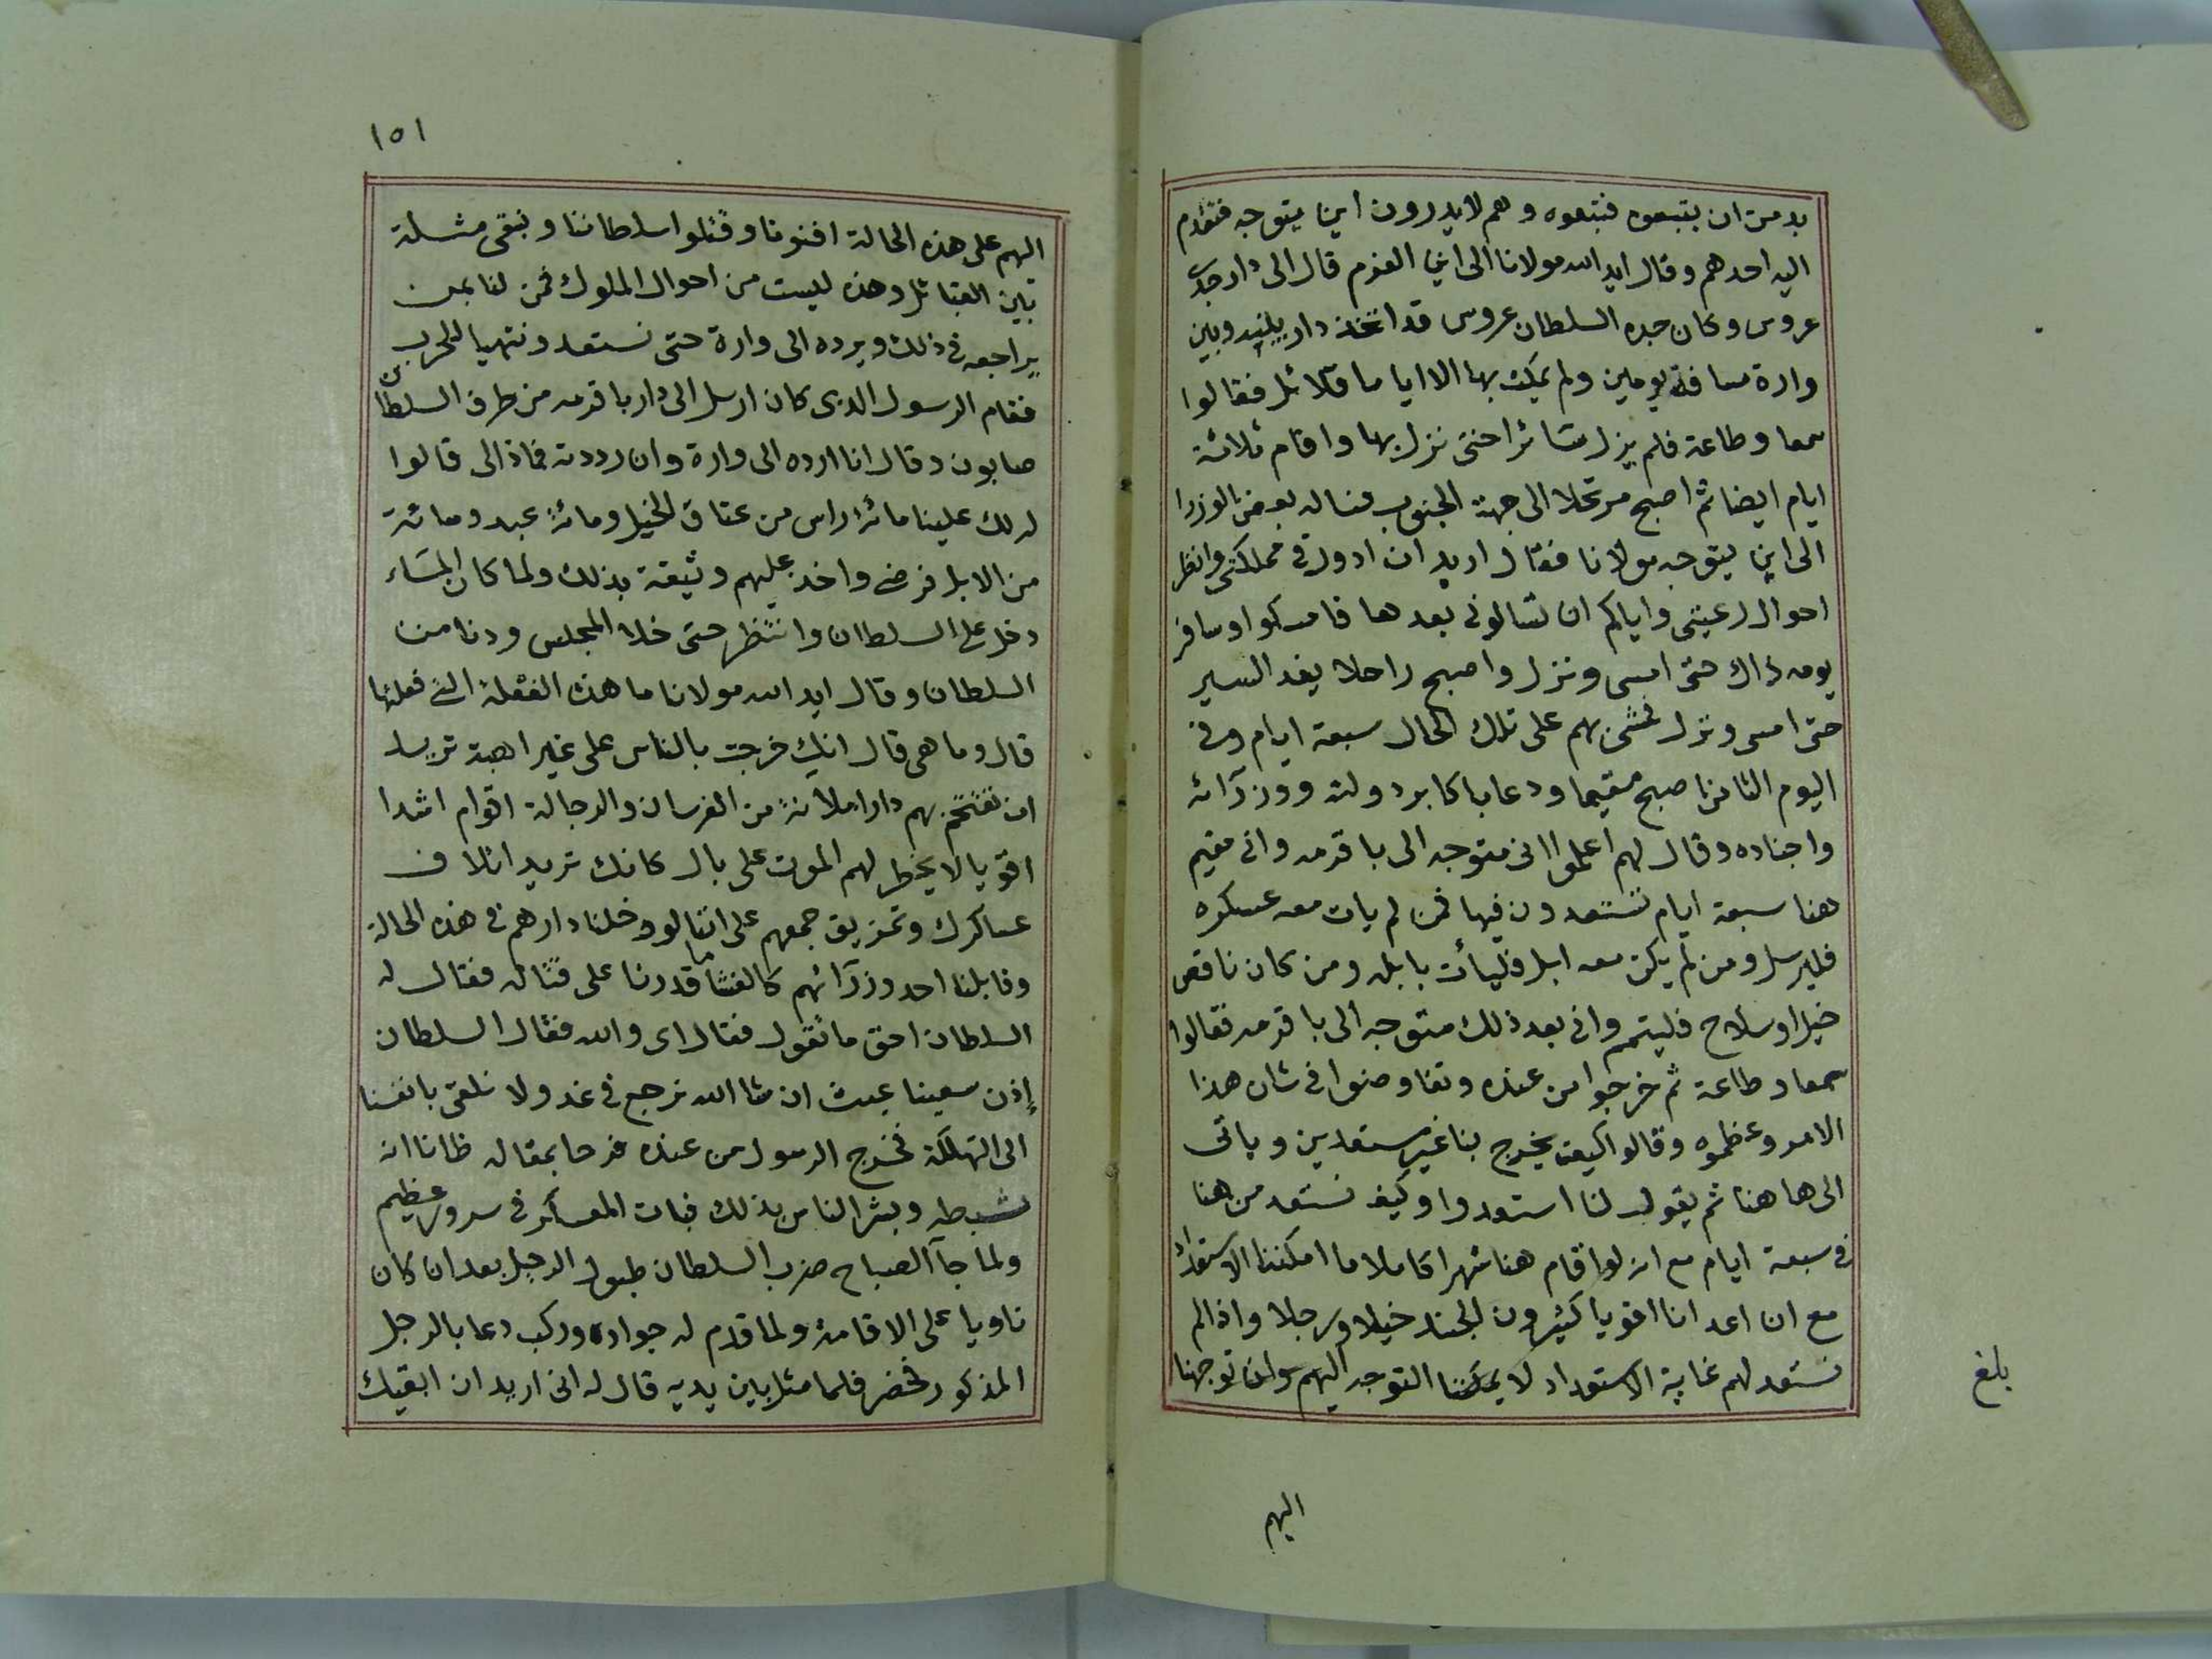 بد من ان يتبعوه فتبعوه وهم لا يدرون اين يتوجه فتقدم
اليه احدهم وقال ايد الله مولانا الى اين العزم قال الى دار جدى
عروس وكان جده السلطان عروس قد اتخذ دار بينه وبين
وارة مسافة يومين ولم يمكث بها الا اياما قلائل فقالوا
سمعا وطاعة فلم يزل سائرا حتى نزل بها واقام ثلاثة
ايام ايضا ثم اصبح مرتحلا الى جهة الجنوب فساله بعض الوزرا
الى اين يتوجه مولانا فقال اريد ان ادور فى مملكتى وانظر
احوال رعيتى واياكم ان تسالونى بعدها فامسكوا وسافر
يومه ذاك حتى امسى ونزل واصبح راحلا يغد السير
حتى امسى ونزل فمشى بهم على تلك الحال سبعة ايام وفى
اليوم الثامن اصبح مقيما ودعا باكابر دولته ووزرآئه
واجناده وقال لهم اعلموا انى متوجه الى باقرمه وانى مقيم
هنا سبعة ايام تستعدون فيها فمن لم يات معه عسكره
فليرسل ومن لم يكن معه ابل فليأت بابله ومن كان ناقص
خيل او سلاح فليتمم وانى بعد ذلك متوجه الى باقرمه فقالوا
سمعا وطاعة ثم خرجوا من عنده وتفاوضوا فى شان هذا
الامر وعظموه وقالوا كيف يخرج بنا غير مستعدين وياتى
الى هاهنا ثم يقول لنا استعدوا وكيف نستعد من هنا
فى سبعة ايام مع انه لو اقام هنا شهرا كاملا ما امكننا الاستعداد
مع ان اعدانا اقويا كثيرون الجند خيلا ورجلا واذا لم
نستعد لهم غاية الاستعداد لا يمكننا التوجه اليهم وان توجهنا
بلغ
اليهم
١٥١
اليهم على هذه الحالة افنونا وقتلوا سلطاننا ونبقى مثلة
بين القبائل وهذه ليست من احوال الملوك فمن لنا بمن
يراجعه فى ذلك ويرده الى وارة حتى نستعد ونتهيا للحرب
فقام الرسول الذى كان ارسل الى دار باقرمه من طرف السلطان
صابون وقال انا ارده الى وارة وان رددته فماذا لى قالوا
له لك علينا مائة راس من عتاق الخيل ومائة عبد ومائة
من الابل فرضى واخذ عليهم وثيقة بذلك ولما كان المسَاء
دخل على السلطان وانتظر حتى خلا المجلس ودنا من
السلطان وقال ايد الله مولانا ما هذه الغفلة التى فعلتها
قال وما هى قال انك خرجت بالناس على غير اهبة تريد
ان تقتحم بهم دارا ملانة من الفرسان والرجالة اقوام اشدا
اقويا لا يخطر لهم الموت على بال كانك تريد اتلاف
عساكرك وتمزيق جمعهم على اننا لو دخلنا دارهم فى هذه الحالة
وقابلنا احد وزرآئهم كالفتشا ما قدرنا على قتاله فقال له
السلطان احق ما تقول فقال اى والله فقال السلطان
إذن سعينا عبث ان شا الله نرجع فى غد ولا نلقى بانفسنا
الى التهلكة فخرج الرسول من عنده فرحا بمقاله ظانا انه
ثبطه وبشر الناس بذلك فبات العسكر فى سرور عظيم
ولما جآ الصباح ضرب السلطان طبول الرحيل بعد ان كان
ناويا على الاقامة ولما قدم له جواده وركب دعا بالرجل
المذكور فحضر فلما مثل بين يديه قال له انى اريد ان ابقيك